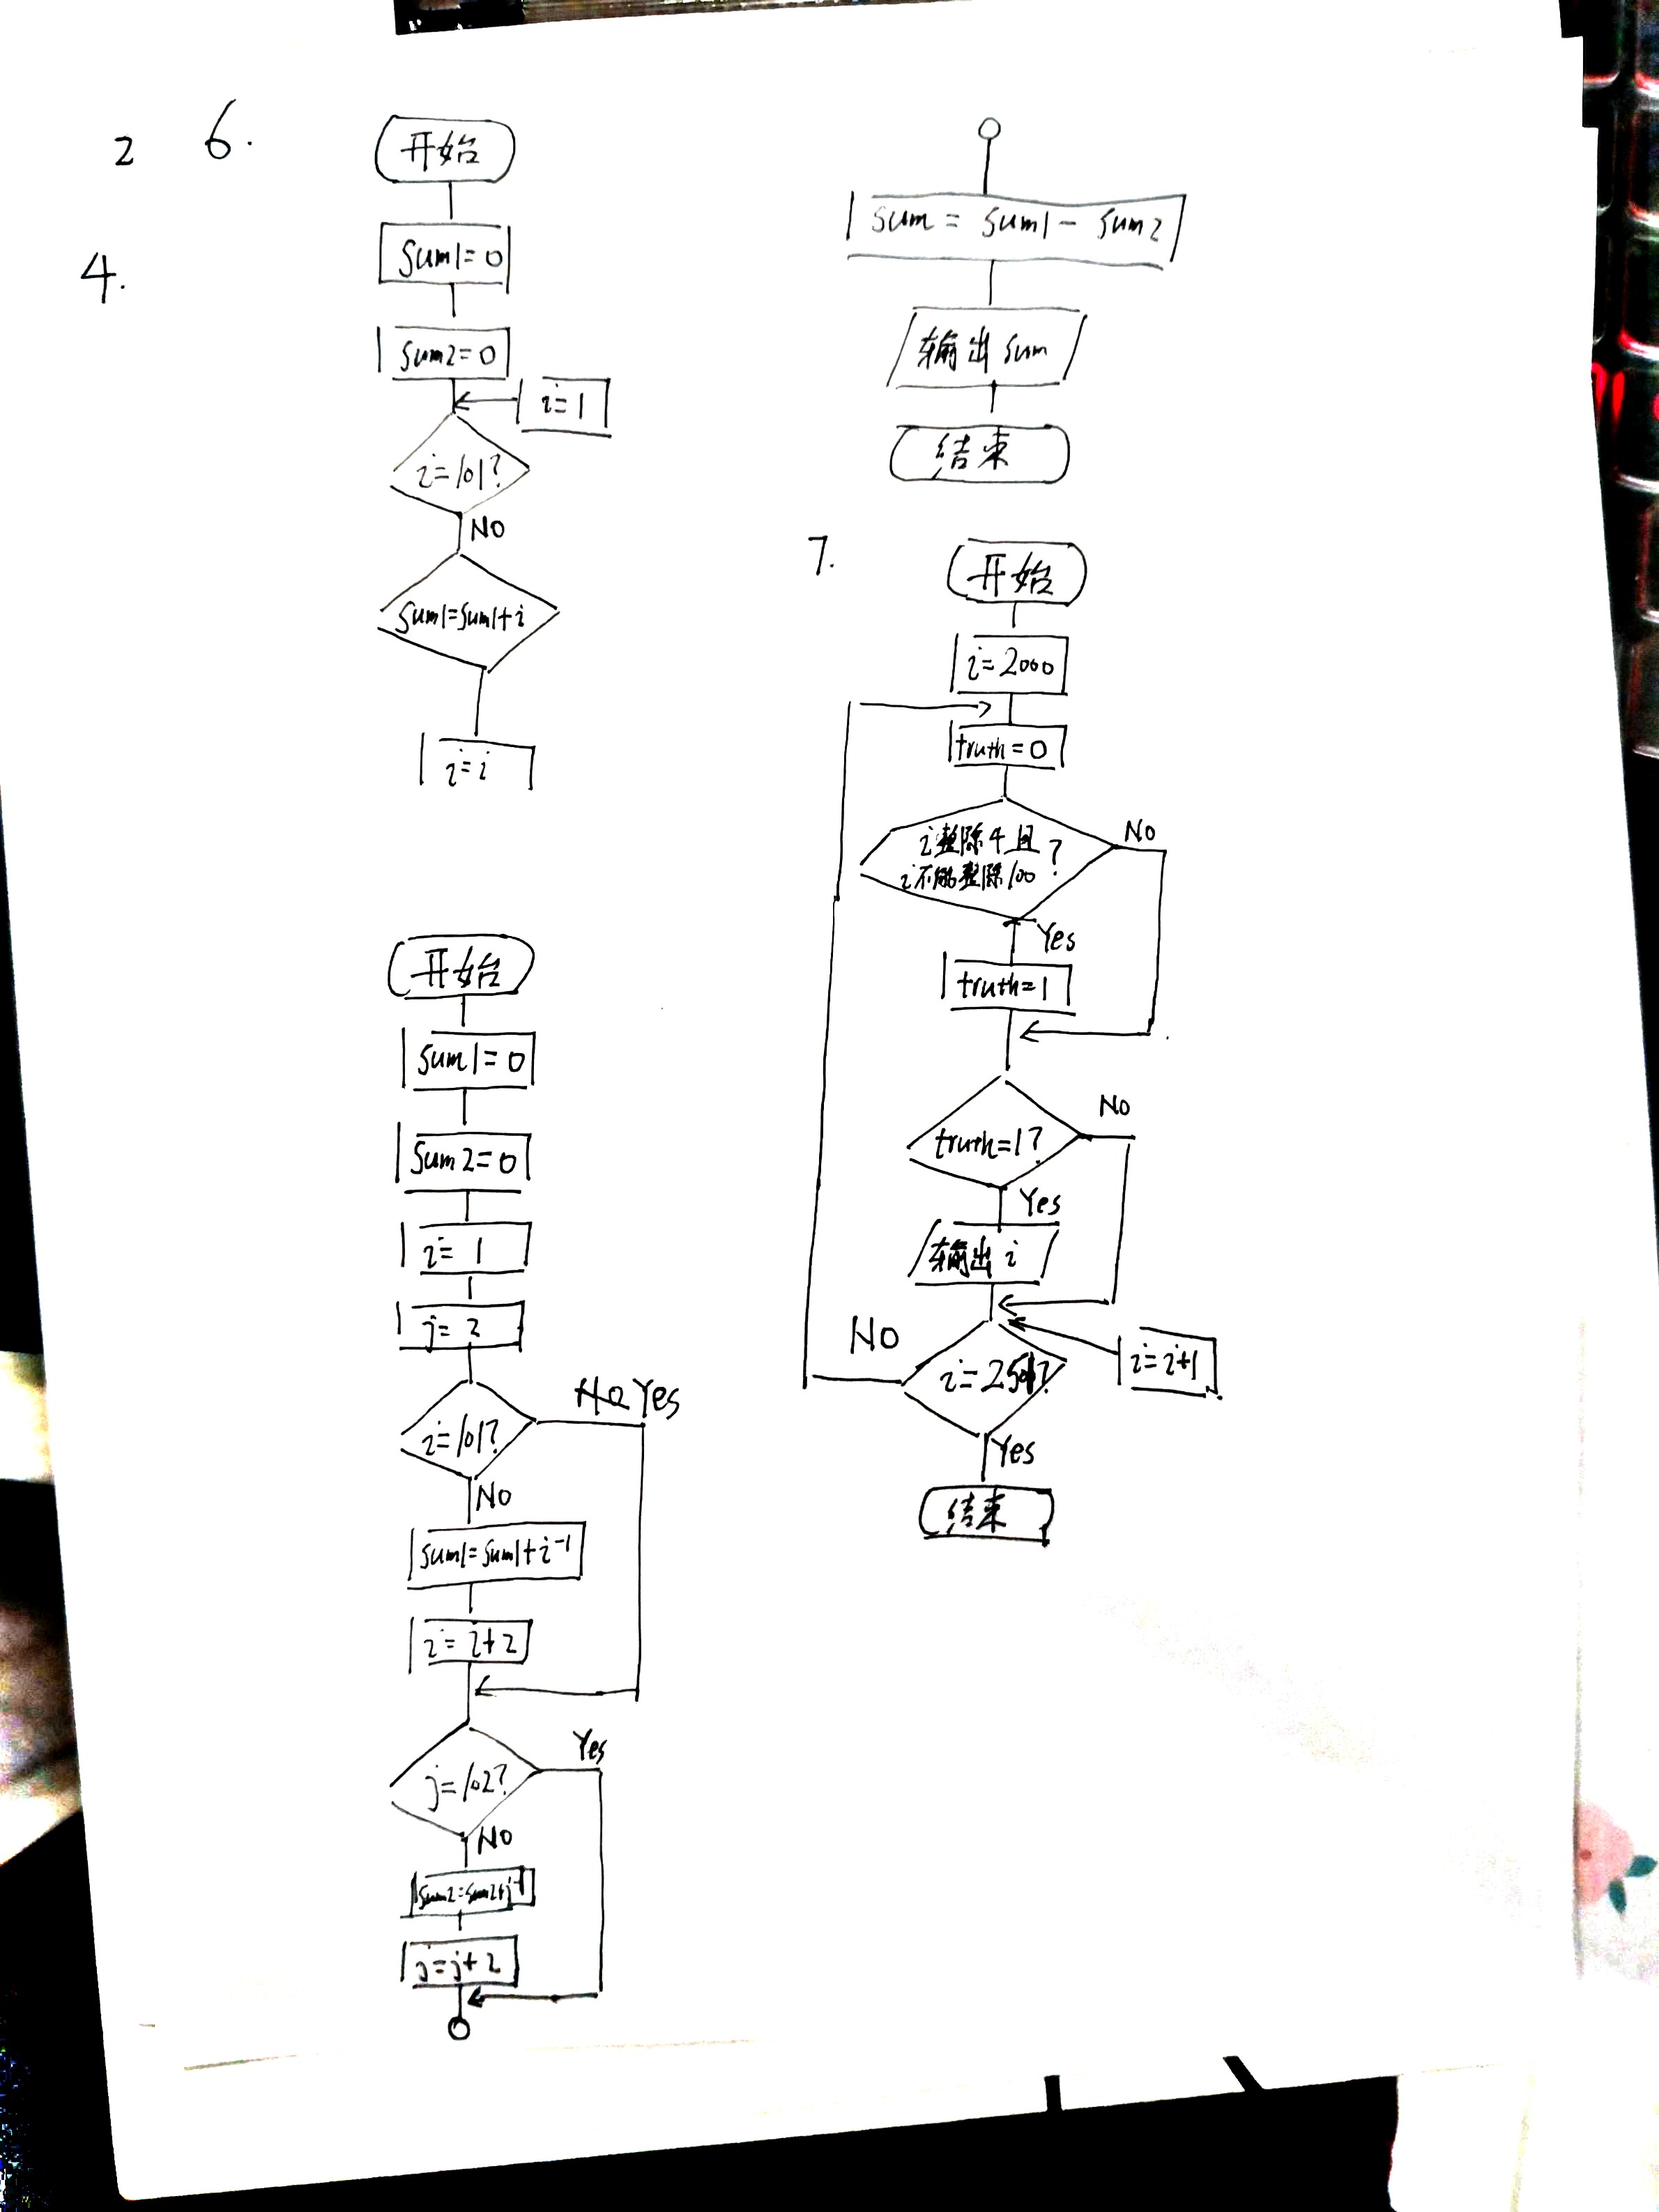 2 6.
4.
开始
sum1=0
sum2=0
i=1
i=101?
NO
sum1=sum1+i
i=i
开始
sum1=0
sum2=0
i=1
j=2
i=101?
Yes
NO
sum1=sum1+i⁻¹
i=i+2
j=102?
Yes
NO
sum2=sum2+j⁻¹
j=j+2
sum=sum1-sum2
输出sum
结束
7.
开始
i=2000
truth=0
i整除4且
i不能整除100?
No
Yes
truth=1
truth=1?
No
Yes
输出i
i=i+1
NO
Yes
结束